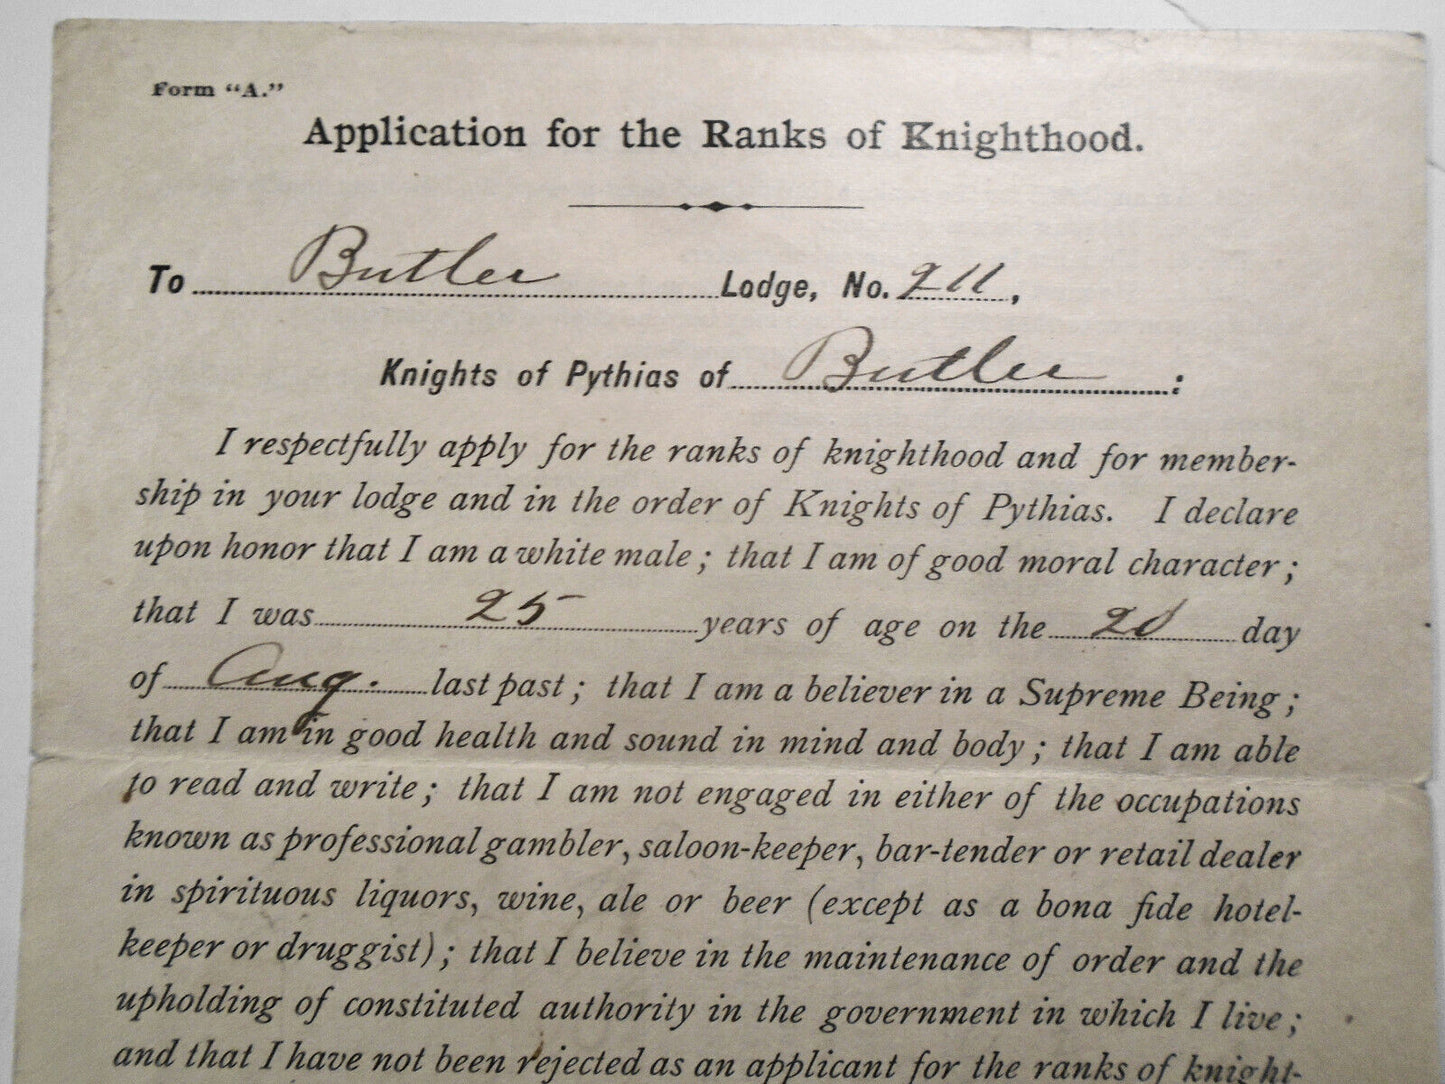 Form “A.”
Application for the Ranks of Knighthood.
To Butler Lodge, No. 211,
Knights of Pythias of Butler :
I respectfully apply for the ranks of knighthood and for member-
ship in your lodge and in the order of Knights of Pythias. I declare
upon honor that I am a white male; that I am of good moral character;
that I was 25 years of age on the day
of Aug. last past; that I am a believer in a Supreme Being;
that I am in good health and sound in mind and body; that I am able
to read and write; that I am not engaged in either of the occupations
known as professional gambler, saloon-keeper, bar-tender or retail dealer
in spirituous liquors, wine, ale or beer (except as a bona fide hotel-
keeper or druggist); that I believe in the maintenance of order and the
upholding of constituted authority in the government in which I live;
and that I have not been rejected as an applicant for the ranks of knight-